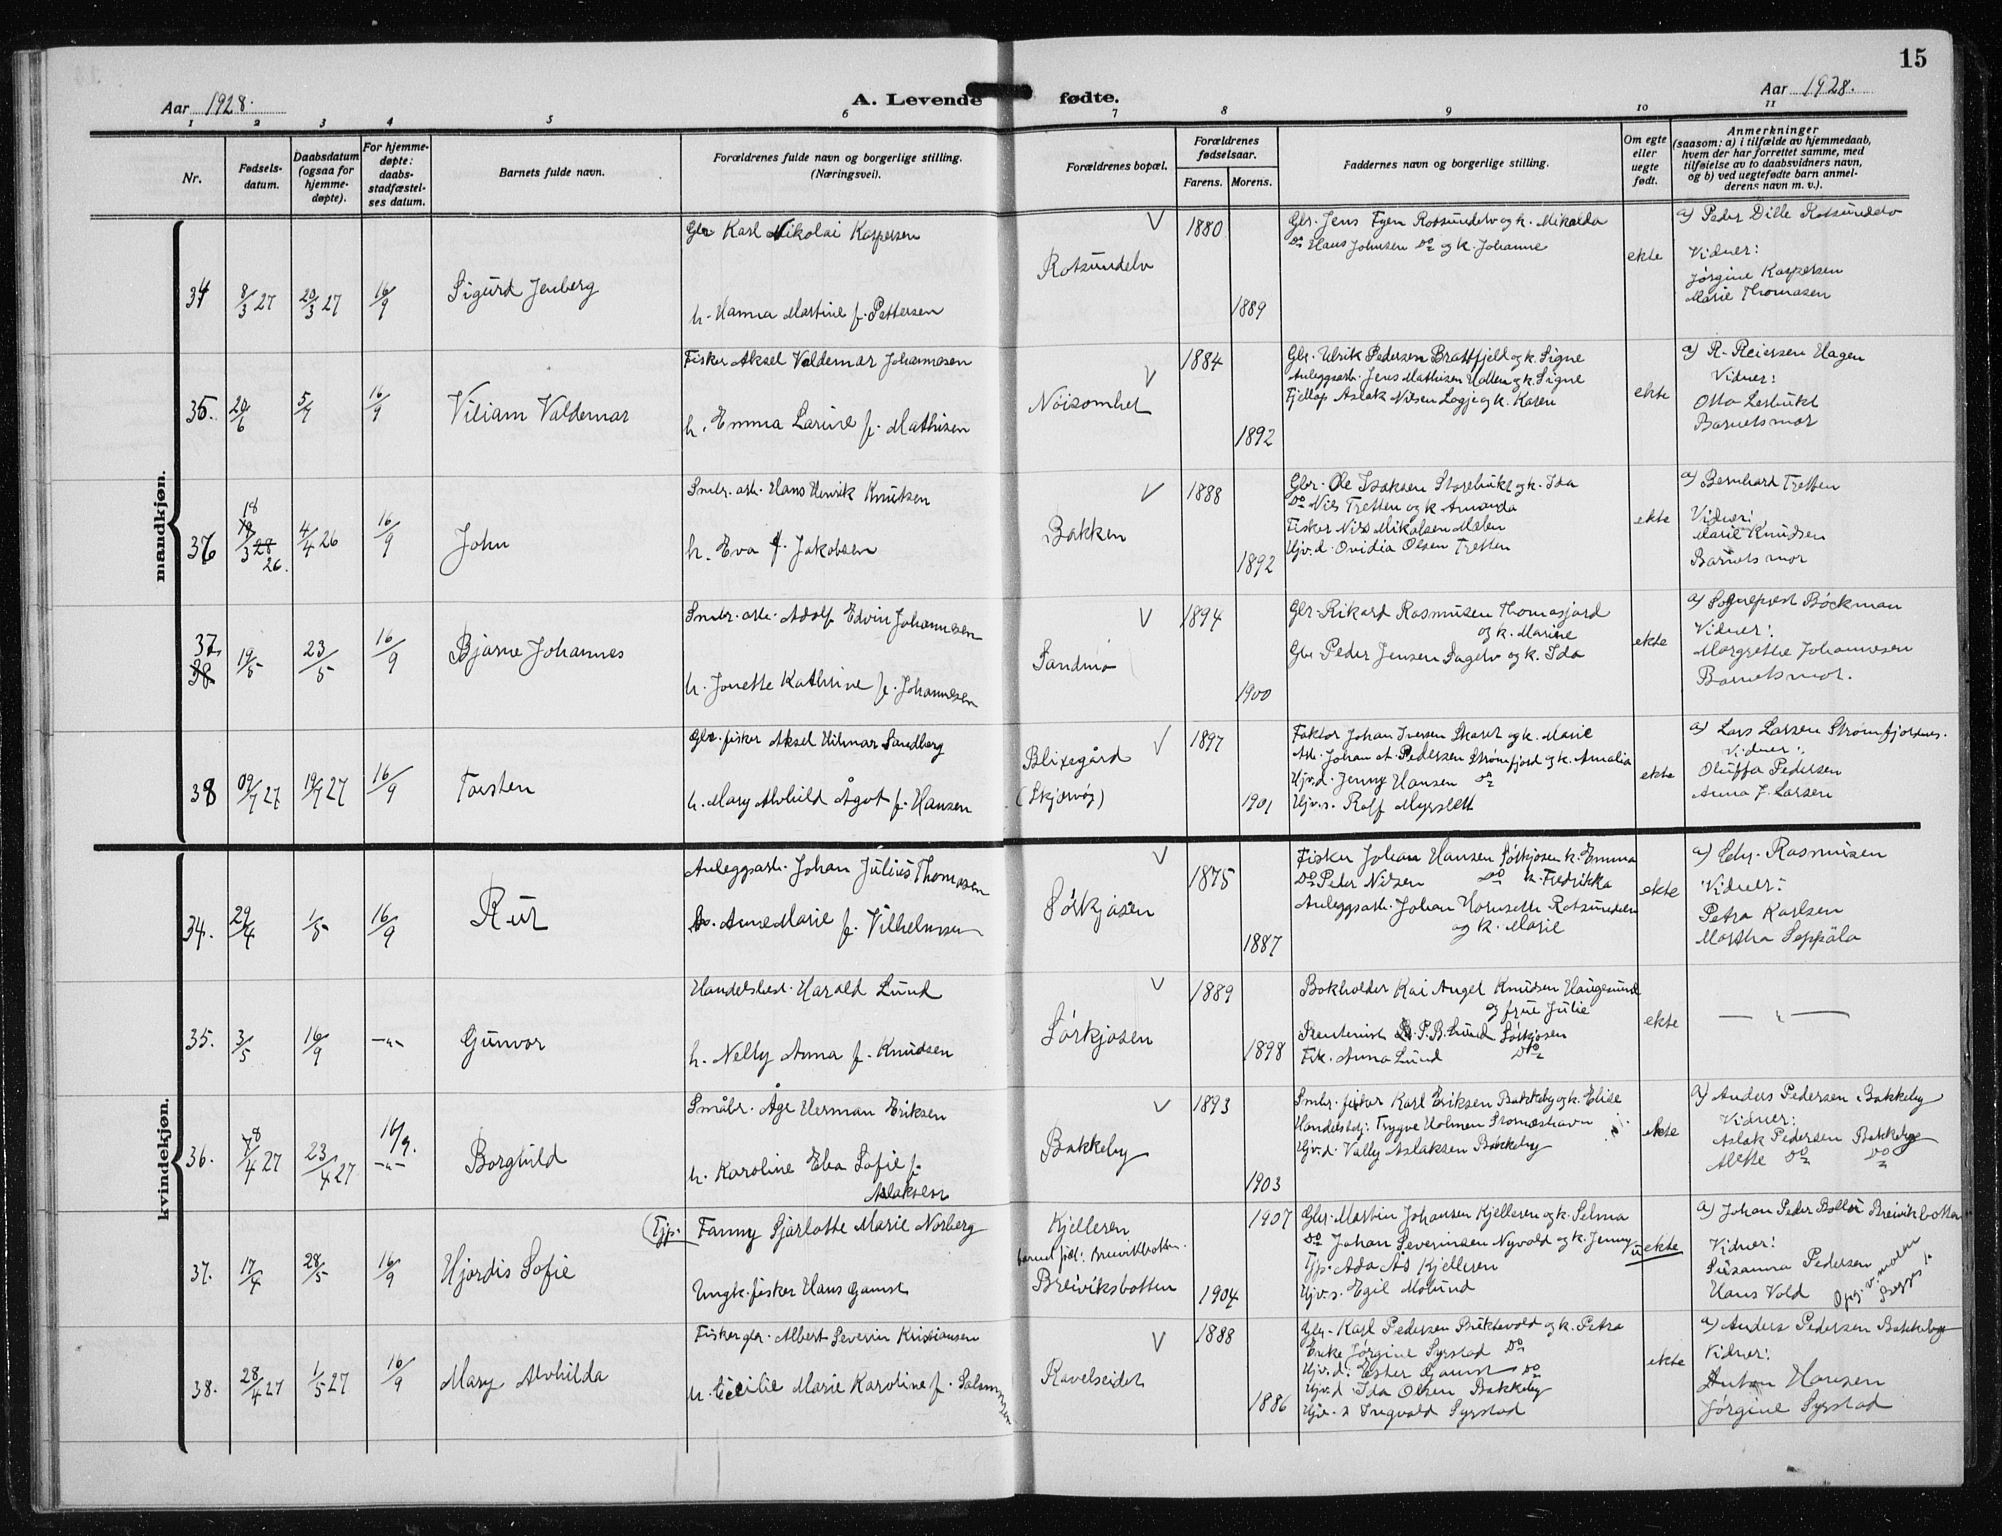 15
Aar 1928.
A. Levende fødte.
Aar 1928.
1 2 3 4 5 6 7 8 9 10 11
Nr.
Fødsels-
datum.
Daabsdatum
(ogsaa for
hjemme-
døpte).
For hjemme-
døpte:
daabs-
stadfæstel-
ses datum.
Barnets fulde navn.
Forældrenes fulde navn og borgerlige stilling.
(Næringsvei).
Forældrenes bopæl.
Forældrenes
fødselsaar.
Farens. Morens.
Faddernes navn og borgerlige stilling.
Om egte
eller
uegte
født.
Anmerkninger
(saasom: a) i tilfælde av hjemmedaab,
hvem der har forrettet samme, med
tilføielse av to daabsvidners navn,
og b) ved uegtefødte barn anmel-
derens navn m. v.).
mandkjøn.
34
8/3 27
20/3 27
16/9
Sigurd Jenberg
Gbr Karl Nikolai Kaspersen
h. Hanna Martine f. Pettersen
Rotsundelv
V
1880
1889
Gbr. Jens Fyen Rotsundelv og k. Mikalda
Do Hans Johnsen Do og k. Johanne
ekte
a) Peder Dille Rotsundelv
Vidner:
Jørgine Kaspersen
Marie Thomasen
35.
20/6
5/7
16/9
Viliam Valdemar
Fisker Aksel Valdemar Johannesen
h. Emma Larine f. Mathisen
Nöisomhet
V
1884
1892
Gbr. Ulrik Pedersen Brattfjeld og k. Signe
Anleggsarb. Jens Mathisen Hallen og k. Signe
Fjellop Aslak Nilsen Logje og k. Karen
ekte
a) R. Reiersen Hagen
Vidner:
Otto Lerbukt
Barnets mor
36
18
18/3 28
26.
4/4 26
16/9
John
Smbr. arb. Hans Henrik Knutsen
h. Eva f. Jakobsen
Bakken
V
1888
1892
Gbr. Ole Isaksen Storebukt og k. Ida
Do Nils Tretten og k Amanda
Fisker Nils Mikalsen Mælen
Ugv.d. Ovidia Olsen Tretten
ekte
a) Bernhard Tretten
Vidner:
Marie Knudsen
Barnets mor
37.
38
19/5
23/5
16/9
Bjarne Johannes
Smbr. arb. Adolf Edvin Johannesen
h. Jonette Kathrine f. Johannesen
Sandmo
V
1894
1900
Gbr. Rikard Rasmusen Thomasjord
og k. Marine
Gbr Peder Jensen Sagelv og k. Ida
ekte
a) Sogneprest Böckman
Vidner:
Margrethe Johannesen
Barnets mor.
38
09/7 27
19/7 27
16/9
Torsten
Gbr. fisker Aksel Hilmar Sandberg
h. Mary Alvhild Ågot f. Hansen
Blixegård
(Skjervøy)
V
1897
1901
Faktor Johan Iversen Skaret og k. Marie
Arb. Johan A. Pedersen Strømfjord og k. Amalia
Ugv.d. Jenny Hansen Do
Ugv.s. Rolf Myrslett
ekte
a) Lars Larsen Strømfjordnes.
Vidner:
Oluffa Pedersen
Anna J. Larsen
kvindekjøn.
34.
29/4
1/5
16/9
Rut
Anleggsarb. Johan Julius Thomasen
h. Anne Marie f. Vilhelmsen
Sörkjosen
V
1875
1887
Fisker Johan Hansen Sörkjosen k. Emma
Do Peder Nilsen Do k. Fredrikka
Anleggsarb. Johan Hornseth Rotsundelv
og k. Marie
ekte
a) Edv. Rasmusen
Vidner:
Petra Karlsen
Martha Seppäla
35.
3/5
16/9
—"—
Gunvor
Handelsbest. Harald Lund
h. Nelly Anna f. Knudsen
Sörkjosen
V
1889
1898
Bokholder Kai Angel Knudsen Haugesund
og frue Julie
P. B. Lund Sörkjosen
Frk. Anna Lund Do
ekte
— " —
36.
8/4 27
23/4 27
16/9.
—"—
Borghild
Småbr. Åge Herman Eriksen
h. Karoline Eba Sofie f.
Aslaksen
Bakkeby
V
1893
1903
Smbr. fisker Karl Eriksen Bakkeby og k. Elise
Handelsbetj: Trygve Holmen Storneshavn
Ugv.d. Vally Aslaksen Bakkeby
ekte
a) Anders Pedersen Bakkeby
Vidner:
Aslak Pedersen Bakkeby
Alette Do Do
37.
17/4
28/5
16/9
Hjordis Sofie
(Tjp. Fanny Sjarlotte Marie Norberg
Ungk. fisker Hans Gamst
Kjelleren
barnet födt: Breivikbotten.
Breiviksbotten
1907
1904
Gbr. Martin Johansen Kjelleren og k. Selma
Do Johan Severinsen Nyvold og k. Jenny
Tjp. Ada As Kjelleren
Ugv.s. Egil Molund
uekte
a) Johan Peder Breivikbotten
Vidner:
Susanna Pedersen
Hans Vold
Opg. v. moren
Begges 1.
38.
28/4 27
1/5 27
16/9
Mary Alvhilda
Fisker gbr. Albert Severin Kristiansen
h. Cecilie Marie Karoline f. Salamonsen
Ravelseidet
V
1888
1886
Gbr. Karl Pedersen Buktevold og k. Petra
Enke Jørgine Syrstad Do
Ugv.d. Ester Gamst Do
Ugv.d. Ida Olsen Bakkeby
Ugv. s Ingvald Syrstad
ekte
a) Anders Pedersen Bakkeby
Vidner:
Anton Hansen
Jørgine Syrstad